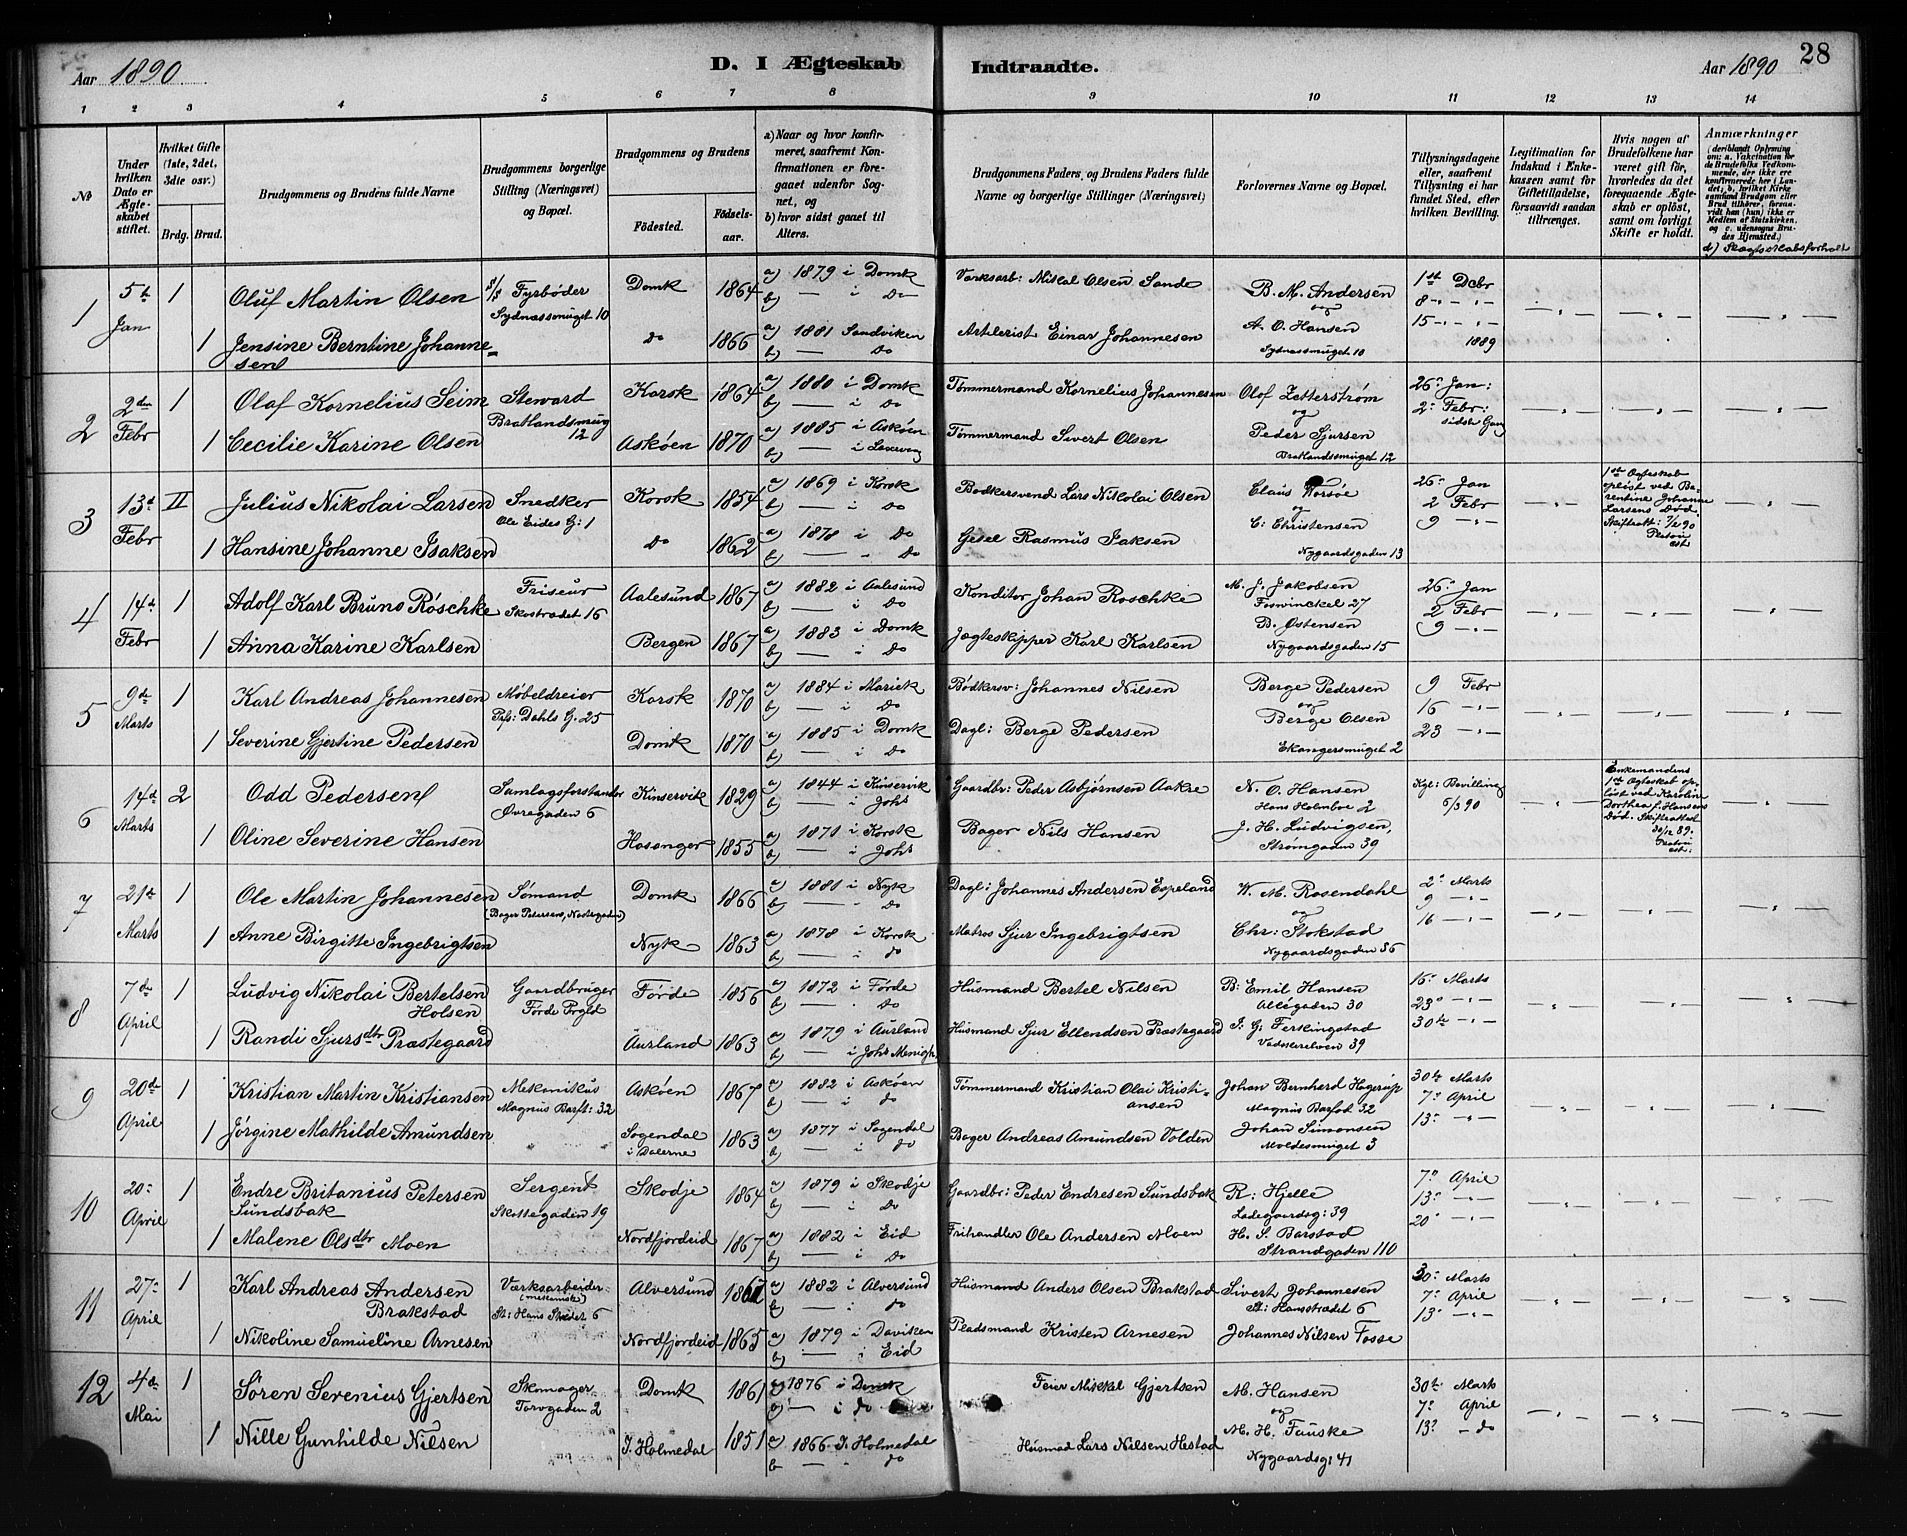 Aar 1890
D. I Ægteskab
Indtraadte.
Aar 1890
28
1 2 3 4 5 6 7 8 9 10 11 12 13 14
No
Under hvilken Dato er Ægteskabet stiftet.
Hvilket Gifte (1ste, 2det, 3die osv.)
Brdg. Brud.
Brudgommens og Brudens fulde Navne
Brudgommens borgerlige Stilling (Næringsvei) og Bopæl.
Brudgommens og Brudens
Fødested.
Fødselsaar.
a) Naar og hvor konfirmeret, saafremt Konfirmationen er foregaaet udenfor Sognet, og
b) hvor sidst gaaet til Alters.
Brudgommens Faders, og Brudens Faders fulde Navne og borgerlige Stillinger (Næringsvei)
Forlovernes Navne og Bopæl.
Tillysningsdagene eller, saafremt Tillysning ei har fundet Sted, efter hvilken Bevilling.
Legitimation for Indskud i Enkekassen samt for Giftetilladelse, forsaavidt saadan tiltrænges.
Hvis nogen af Brudefolkene har været gift før, hvorledes da det foregaaende Ægteskab er opløst, samt om lovligt Skifte er holdt.
Anmærkninger
(deriblandt Oplysning om: a. Vakcination for de Brudefolks Vedkommende, der ikke ere konfirmerede her i Landet; b. hvilket Kirkesamfund Brudgom eller Brud tilhører, forsaavidt han (hun) ikke er Medlem af Statskirken, og c. udensogns Brudes Hjemsted.)
d) Slægtskabsforhold
1 5te Jan 1 Oluf Martin Olsen S/S Fyrbøder Sydnæssmuget 10 Domk 1864 a) 1879 i Domk b) — i do Værksarb: Mikal Olsen Sande B. M. Andersen og 1ste Debr 8 - " - 15 - " - 1889
1 Jensine Berntine Johannesen do 1866 a) 1881 Sandviken b) — do Artilerist Einar Johannesen A. O. Hansen Sydnæssmuget 10
2 2den Febr 1 Olaf Kornelius Seim Steward Bratlandsmug 12 Korsk 1864 a) 1880 i Domk b) — i do Tømmermand Kornelius Johannesen Olof Zetterstrøm og 26 Jan: 2 Febr: sidste Gang
1 Cecilie Karine Olsen Askøen 1870 a) 1885 i Askøen b) — i Tømmermand Sivert Olsen Peder Sjursen Bratlandssmuget 12
3 13d Febr II Julius Nikolai Larsen Snedker Ole Eides G: 1 Korsk 1854 a) 1869 i Korsk b) — i do Bødkersvend Lars Nikolai Olsen Claus Korsøe og 26 Jan 2 Febr 9 — " — 1ste Ægteskab opløst ved Berentine Johanne Larsens Død. Skifteatt: 7/2 90
1 Hansine Johanne Isaksen do 1862 a) 1878 i do b) — " do Gesel Rasmus Isaksen C: Christensen Nygaardsgaden 13
4 14d Febr 1 Adolf Karl Bruno Röschke Friseur Skostrædet 16 Aalesund 1867 a) 1882 i Aalesund b) — i do Konditor Johan Roschke M. J. Jakobsen Foswinckel 27 26 Jan 2 Febr 9 — " —
1 Anna Karine Karlsen Bergen 1867 a) 1883 i Domk b) — i do Jægteskipper Karl Karlsen B. Østensen Nygaardsgaden 15
5 9de Marts 1 Karl Andreas Johannesen Møbeldreier Prfs: Dahls G. 25 Korsk 1870 a) 1884 i Mariek b) — i do Bødkersv: Johannes Nilsen Berge Pedersen og 9 Febr 16 — " — 23 — " —
1 Severine Gjertine Pedersen Domk 1870 a) 1885 i Domk b) — i do Dagl: Berge Pedersen Berge Olsen Ekangersmuget 2
6 14d Marts 2 Odd Pedersen Samlagsforstander Øvregaden 6 Kinservik 1829 a) 1844 i Kinservik b) — i Johs Gaardbr: Peder Asbjørnsen Aakre N. O. Hansen Hans Holmboe 2 Kgl: Bevilling 5/3 90 Enkemandens 1ste Ægteskab opløst ved Karoline Dorthea f. Hansens Død. Skifteattest 30/12 89.
1 Oline Severine Hansen Hosanger 1855 a) 1871 i Korsk b) — i Johs Bager Nils Hansen J. H. Ludvigsen, Strømgaden 39
7 21de Marts 1 Ole Martin Johannesen Sømand (Bager Petersens, Nostegaden) Domk 1866 a) 1881 i Nyk b) — " do Dagl: Johannes Andersen Espeland W. M. Rosendahl og 2 Marts 9 — " — 16 — " —
1 Anne Birgitte Ingebrigtsen Nyk 1863 a) 1878 i Korsk b) — " do Matros Sjur Ingebrigtsen Chr: Stokstad Nygaardsgaden 86
8 7de April 1 Ludvig Nikolai Bertelsen Holsen Gaardbruger Førde Prgld Førde 1856 a) 1872 i Førde b) — " do Husmand Bertel Nilsen B: Emil Hansen Allégaden 30 16 Marts 23 — " — 30te — " —
1 Randi Sjursdtr Præstegaard Aurland 1863 a) 1879 i Aurland b) — i Johs Menigh. Husmand Sjur Ellendsen Præstegaard S. G. Ferkingstad Vadskerelven 39
9 20de April 1 Kristian Martin Kristiansen Mekanikus Magnus Barft: 32 Askøen 1867 a) 1882 i Askøen b) — i do Tømmermand Kristian Olai Kristiansen Johan Bernhard Hagerup Magnus Barfod 32 30te Marts 7 April 13 — " —
1 Jørgine Mathilde Amundsen Sogendal i Dalerne 1863 a) 1877 i Sogendal b) — i do Bager Andreas Amundsen Volden Johan Simonsen Moldesmuget 3
10 20 April 1 Endre Britanius Petersen Sundsbak Sergent Skottegaden 19 Skodje 1864 a) 1879 i Skodje b) — i do Gaardbr: Peder Endresen Sundsbak R: Hjelle Ladegaardsg: 39 7 April 13 — " — 20 — " —
1 Malene Olsdtr Moen Nordfjordeid 1867 a) 1882 i Eid b) — i do Frihandler Ole Andersen Moen H. S. Barstad Strandgaden 110
11 27 April 1 Karl Andreas Andersen Brakstad Værksarbeider (mekanisk) St: Hans Stræder 6 Alversund a) 1882 i Alversund b) — " do Husmand Anders Olsen Brakstad Sivert Johannesen St: Hansstrædet 6 30 Marts 7 April 13 — " —
1 Nikoline Samueline Arnesen Nordfjordeid 1865 a) 1879 i Daviken b) — " Eid Pladsmand Kristen Arnesen Johannes Nilsen Fosse
12 4de Mai 1 Søren Severius Gjertsen Skomager Torvgaden 2 Domk 1861 a) 1876 i Domk b) — i do Feier Mikkal Gjertsen M. Hansen og 30te Marts 7 April 13 — do
1 Nille Gunhilde Nilsen I. Holmedal 1851 a 1866 I. Holmedal b — " do Husmad Lars Nilsen Hestad M. H. Fauske Nygaardsg: 41